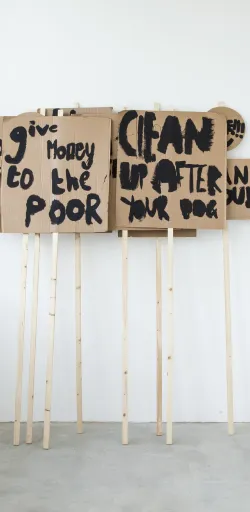 give
Money
to the
POOR
CLEAN
UP AFTER
YOUR DOG